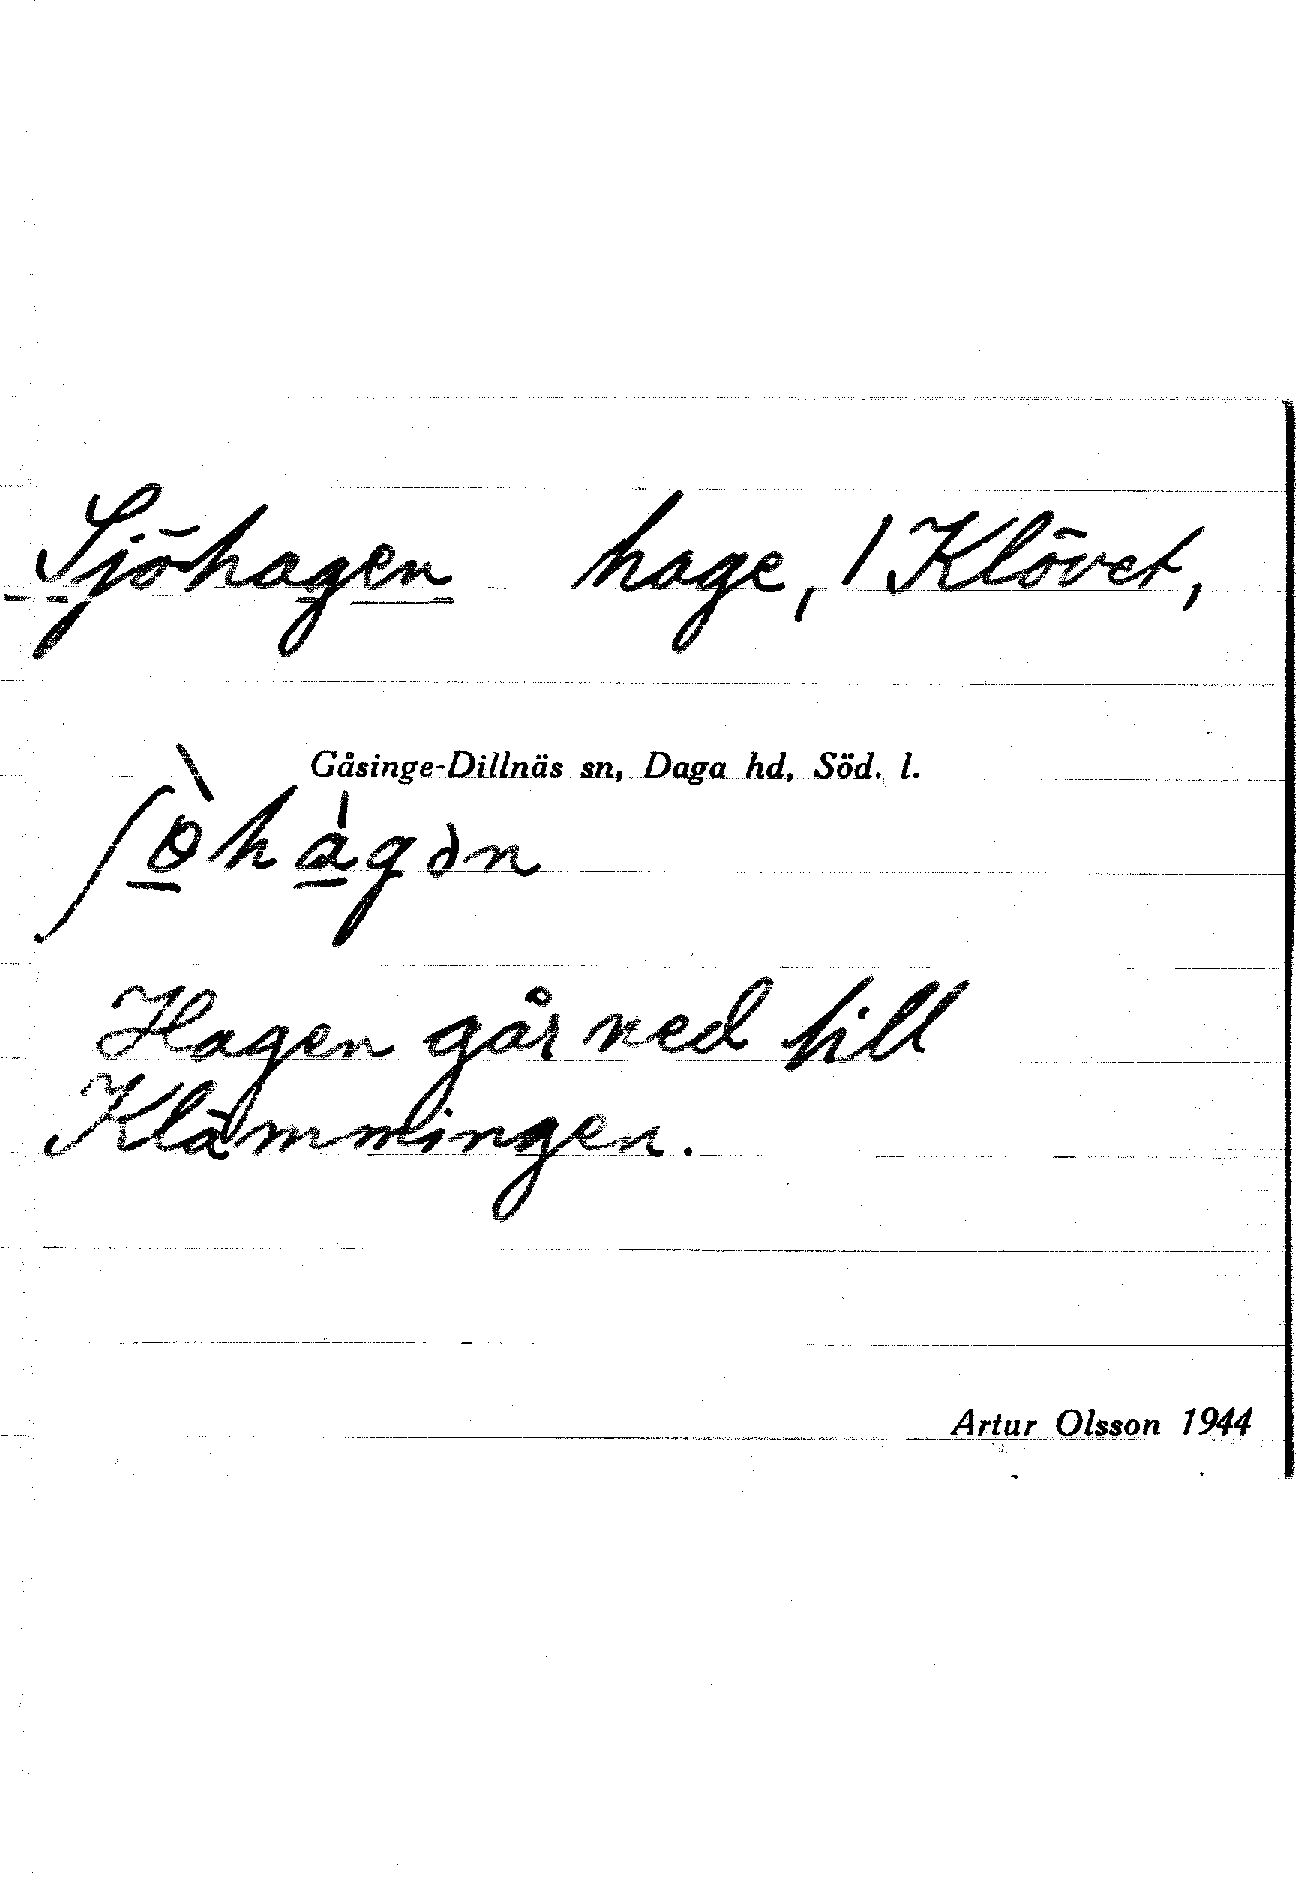 Sjöhagen hage, 1 Klövet,
Gåsinge-Dillnäs sn, Daga hd, Söd. l.
ʃö̀hàgən
Hagen går ned till
Klämmingen.
Artur Olsson 1944